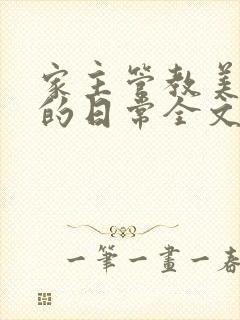 家主管教美
的日常全文
一筆一畫一春